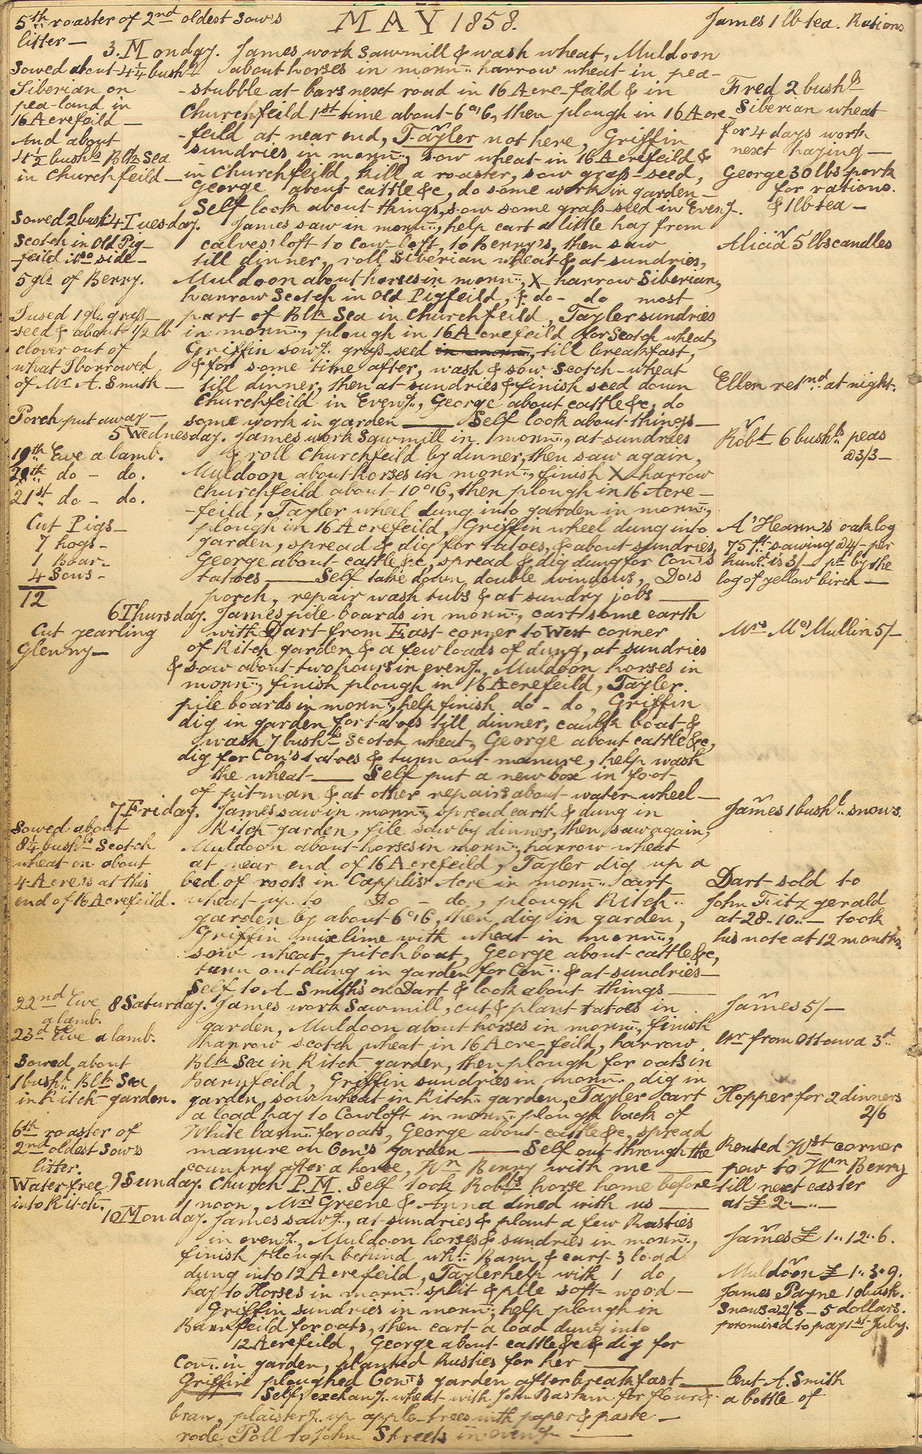 MAY 1858.
5th roaster of 2nd oldest Sow's
litter —
James 1 lb tea. Rations
3. Monday. James work Sawmill & wash wheat, Muldoon
about horses in mornn., harrow wheat in pea-
-stubble at bars next road in 16 Acre-feild & in
Churchfeild 1st time about 6 o'6, then plough in 16 Acre-
-feild at near end, Tayler not here, Griffin
sundries in mornn., sow wheat in 16 Acrefeild &
in Churchfeild, kill a roaster, sow grass-seed,
George about cattle &c, do some work in garden —
Self look about things, sow some grass-seed in Eveng.
Sowed about 4¼ bushls
Siberian on
pea-land in
16 Acrefeild —
And about
4½ bushls Blk Sea
in Churchfeild —
Fred 2 bushls
Siberian wheat
for 4 days work
next haying —
George 30 lbs pork
for rations.
& 1 lb tea —
4 Tuesday. James saw in mornn., help cart a little hay from
calves' loft to Cow loft, to Berry's, then saw
till dinner, roll Siberian wheat & at sundries,
Muldoon about horses in mornn., X harrow Siberian,
harrow Scotch in Old Pigfeild, & do - do most
part of Blk Sea in Churchfeild, Tayler sundries
in mornn., plough in 16 Acrefeild for Scotch wheat,
Griffin sowg. grass seed till breakfast,
& for some time after, wash & sow Scotch-wheat
till dinner, then at sundries & finish seed down
Churchfeild in Eveng., George about cattle &c, do
some work in garden — Self look about things —
Sowed 2 bushls
Scotch in Old Pig-
-feild side —
5 gls of Berry.
I used 1 gl. grass-
-seed & about ½ lb
clover out of
what I borrowed
of Mr A. Smith —
Porch put away —
Alicia 5 lbs candles
Ellen retnd at night.
5 Wednesday. James work Sawmill in mornn., at sundries
& roll Churchfeild by dinner, then saw again,
Muldoon about horses in mornn., finish X harrow
Churchfeild about 10 o'6, then plough in 16 Acre-
-feild, Tayler wheel dung into garden in mornn.,
plough in 16 Acrefeild, Griffin wheel dung into
garden, spread & dig for tatoes, & about sundries,
George about cattle &c, spread & dig dung for Con's
tatoes — Self take down double windows, Do's
porch, repair wash tubs & at sundry jobs —
19th Ewe a lamb.
20th do - do.
21st do - do.
Cut Pigs —
7 hogs -
1 Boar -
4 Sows -
12
Robt 6 bushls peas
@ 3/3 —
A'Hearn's oak log
75 ft. sawing @ 4/- per
hund. is 3/- pd by the
log of yellow birch —
6 Thursday. James pile boards in mornn., cart some earth
with Dart from East corner to West corner
of Kitch garden & a few loads of dung, at sundries
& saw about two hours in eveng., Muldoon horses in
mornn., finish plough in 16 Acrefeild, Tayler
pile boards in mornn., help finish do - do, Griffin
dig in garden for tatoes till dinner, caulk boat &
wash 7 bushls Scotch wheat, George about cattle &c,
dig for Con's tatoes & turn out manure, help wash
the wheat — Self put a new box in foot
of pitman & at other repairs about water wheel —
Cut yearling
Glenny —
Mrs McMullin 5/-
7 Friday. James saw in mornn., spread earth & dung in
Kitch-garden, file saw by dinner, then saw again,
Muldoon about horses in mornn., harrow wheat
at near end of 16 Acrefeild, Tayler dig up a
bed of roots in Capplis' Acre in mornn., cart
wheat up to Do - do, plough Kitch-
garden by about 6 o'6, then dig in garden,
Griffin mix lime with wheat in mornn.,
sow wheat, pitch boat, George about cattle &c,
turn out dung in garden for Con. & at sundries —
Self to A. Smith's on Dart & look about things —
Sowed about
8¼ bushls Scotch
wheat on about
4 Acres at this
end of 16 Acrefeild.
James 1 bushl. snows.
Dart sold to
John Fitzgerald
at 28-10-- took
his note at 12 months.
8 Saturday. James work Sawmill, cut & plant tatoes in
garden, Muldoon about horses in mornn., finish
harrow scotch wheat in 16 Acre-feild, harrow
Blk Sea in Kitch-garden, then plough for oats in
Barnfeild, Griffin sundries in mornn., dig in
garden, sow wheat in Kitch-garden, Tayler cart
a load hay to Cowloft in mornn., plough back of
White barn for oats, George about cattle &c, spread
manure on Con's garden — Self out through the
country after a horse, Wm Berry with me —
22nd Ewe
a lamb.
23rd Ewe a lamb.
Sowed about
1 bushl. Blk Sea
in Kitch-garden.
6th roaster of
2nd oldest Sow's
litter.
Water free
into Kitch.
James 5/-
Wr from Ottawa 3rd
Hopper for 2 dinners
2/6
Rented Wst corner
pew to Wm Berry
till next easter
at £2--
9 Sunday. Church P.M. Self took Robt's horse home before
noon, Mrs Greene & Anna dined with us —
10 Monday. James sawg., at sundries & plant a few Rusties
in eveng., Muldoon horses & sundries in mornn.,
finish plough behind wht. Barn & cart 3 load
dung into 12 Acrefeild, Tayler help with 1 do
hay to Horses in mornn. split & pile soft-wood —
Griffin sundries in mornn., help plough in
Barnfeild for oats, then cart a load dung into
12 Acrefeild, George about cattle &c & dig for
Con. in garden, planted Rusties for her —
Griffin ploughed Con's garden after breakfast —
Self exchang. wheat with John Baskin for flour &
bran, plasterg. up apple-trees with paper & paste —
rode Poll to John Streets in eveng —
James £1..12..6.
Muldoon £1..3..9.
James Payne 1 bush.
snows @ 2/6 — 5 dollars
promised to pay 1st July.
Cut A. Smith
a bottle of